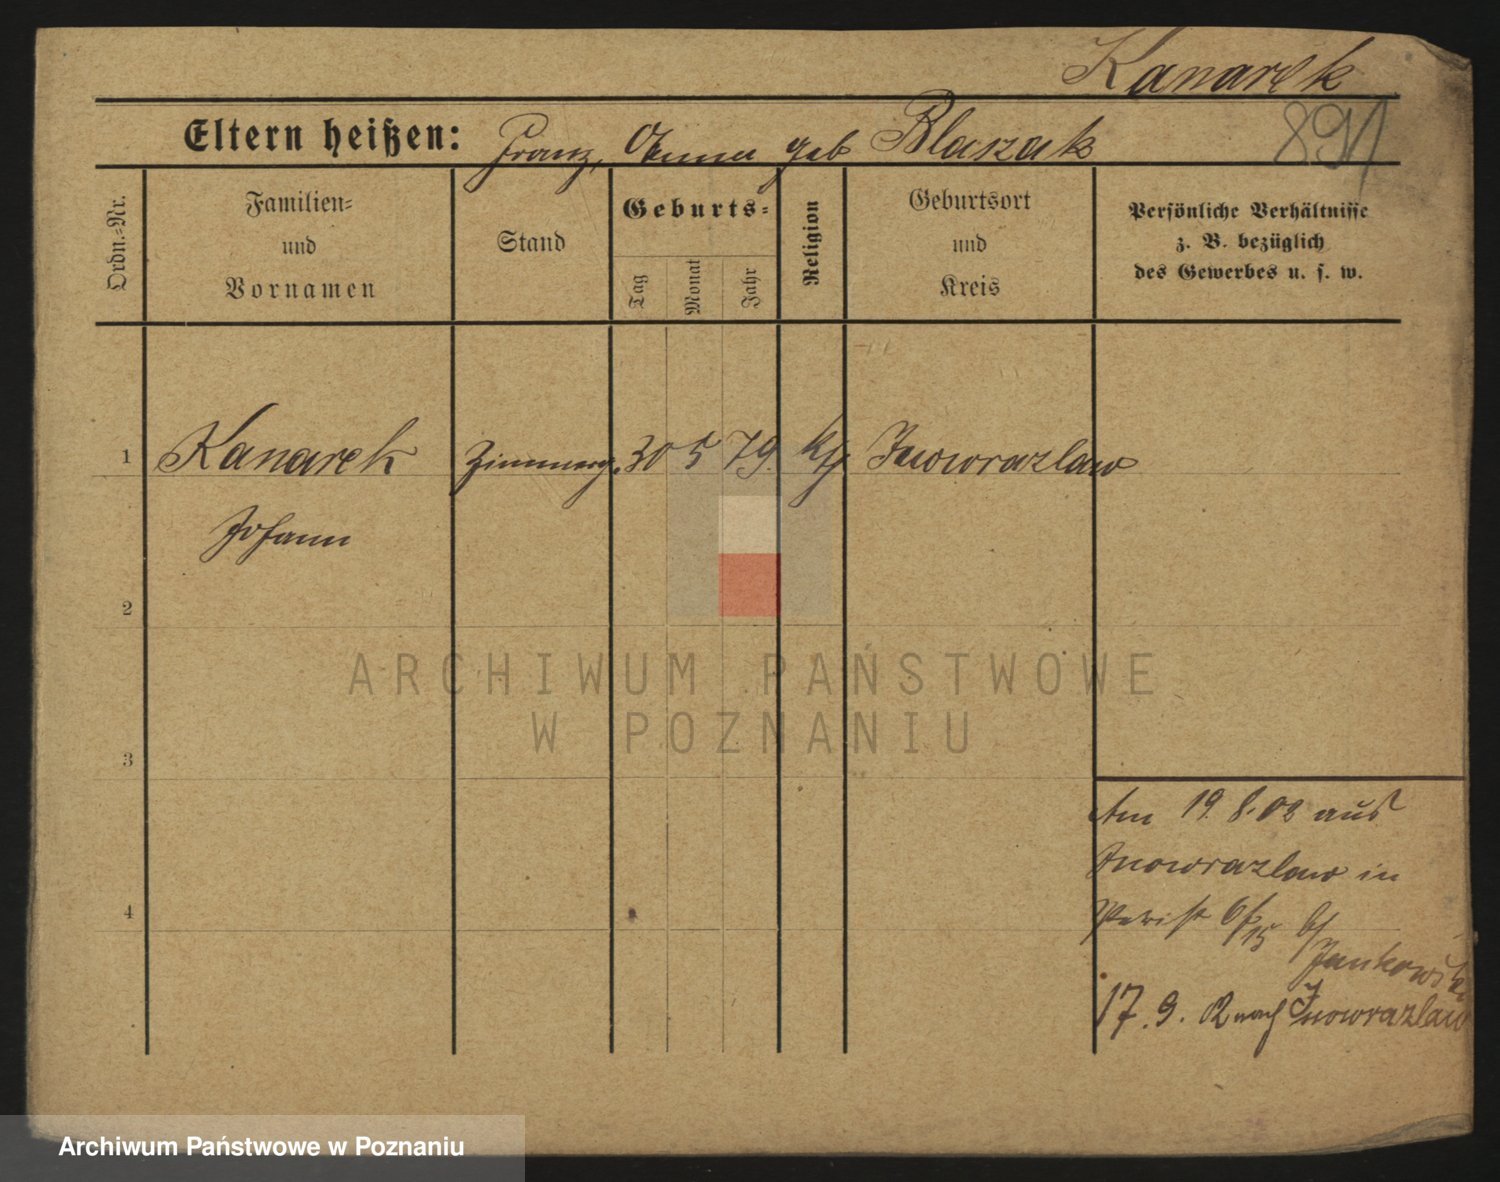 Kanarek
891
Eltern heißen: Franz, Anna geb Blazak
Ordn.=Nr.
Familien=
und
Vornamen
Stand
Geburts=
Tag
Monat
Jahr
Religion
Geburtsort
und
Kreis
Persönliche Verhältnisse
z. B. bezüglich
des Gewerbes u. s. w.
1 Kanarek Zimmerg. 30 5 79. kth Inowrazlaw
Johann
2
3
4
Am 19. 8. 08 aus
Inowrazlaw in
6/15 b/
Jankowski
17. 9. R nach Inowrazlaw
ARCHIWUM PAŃSTWOWE
W POZNANIU
Archiwum Państwowe w Poznaniu